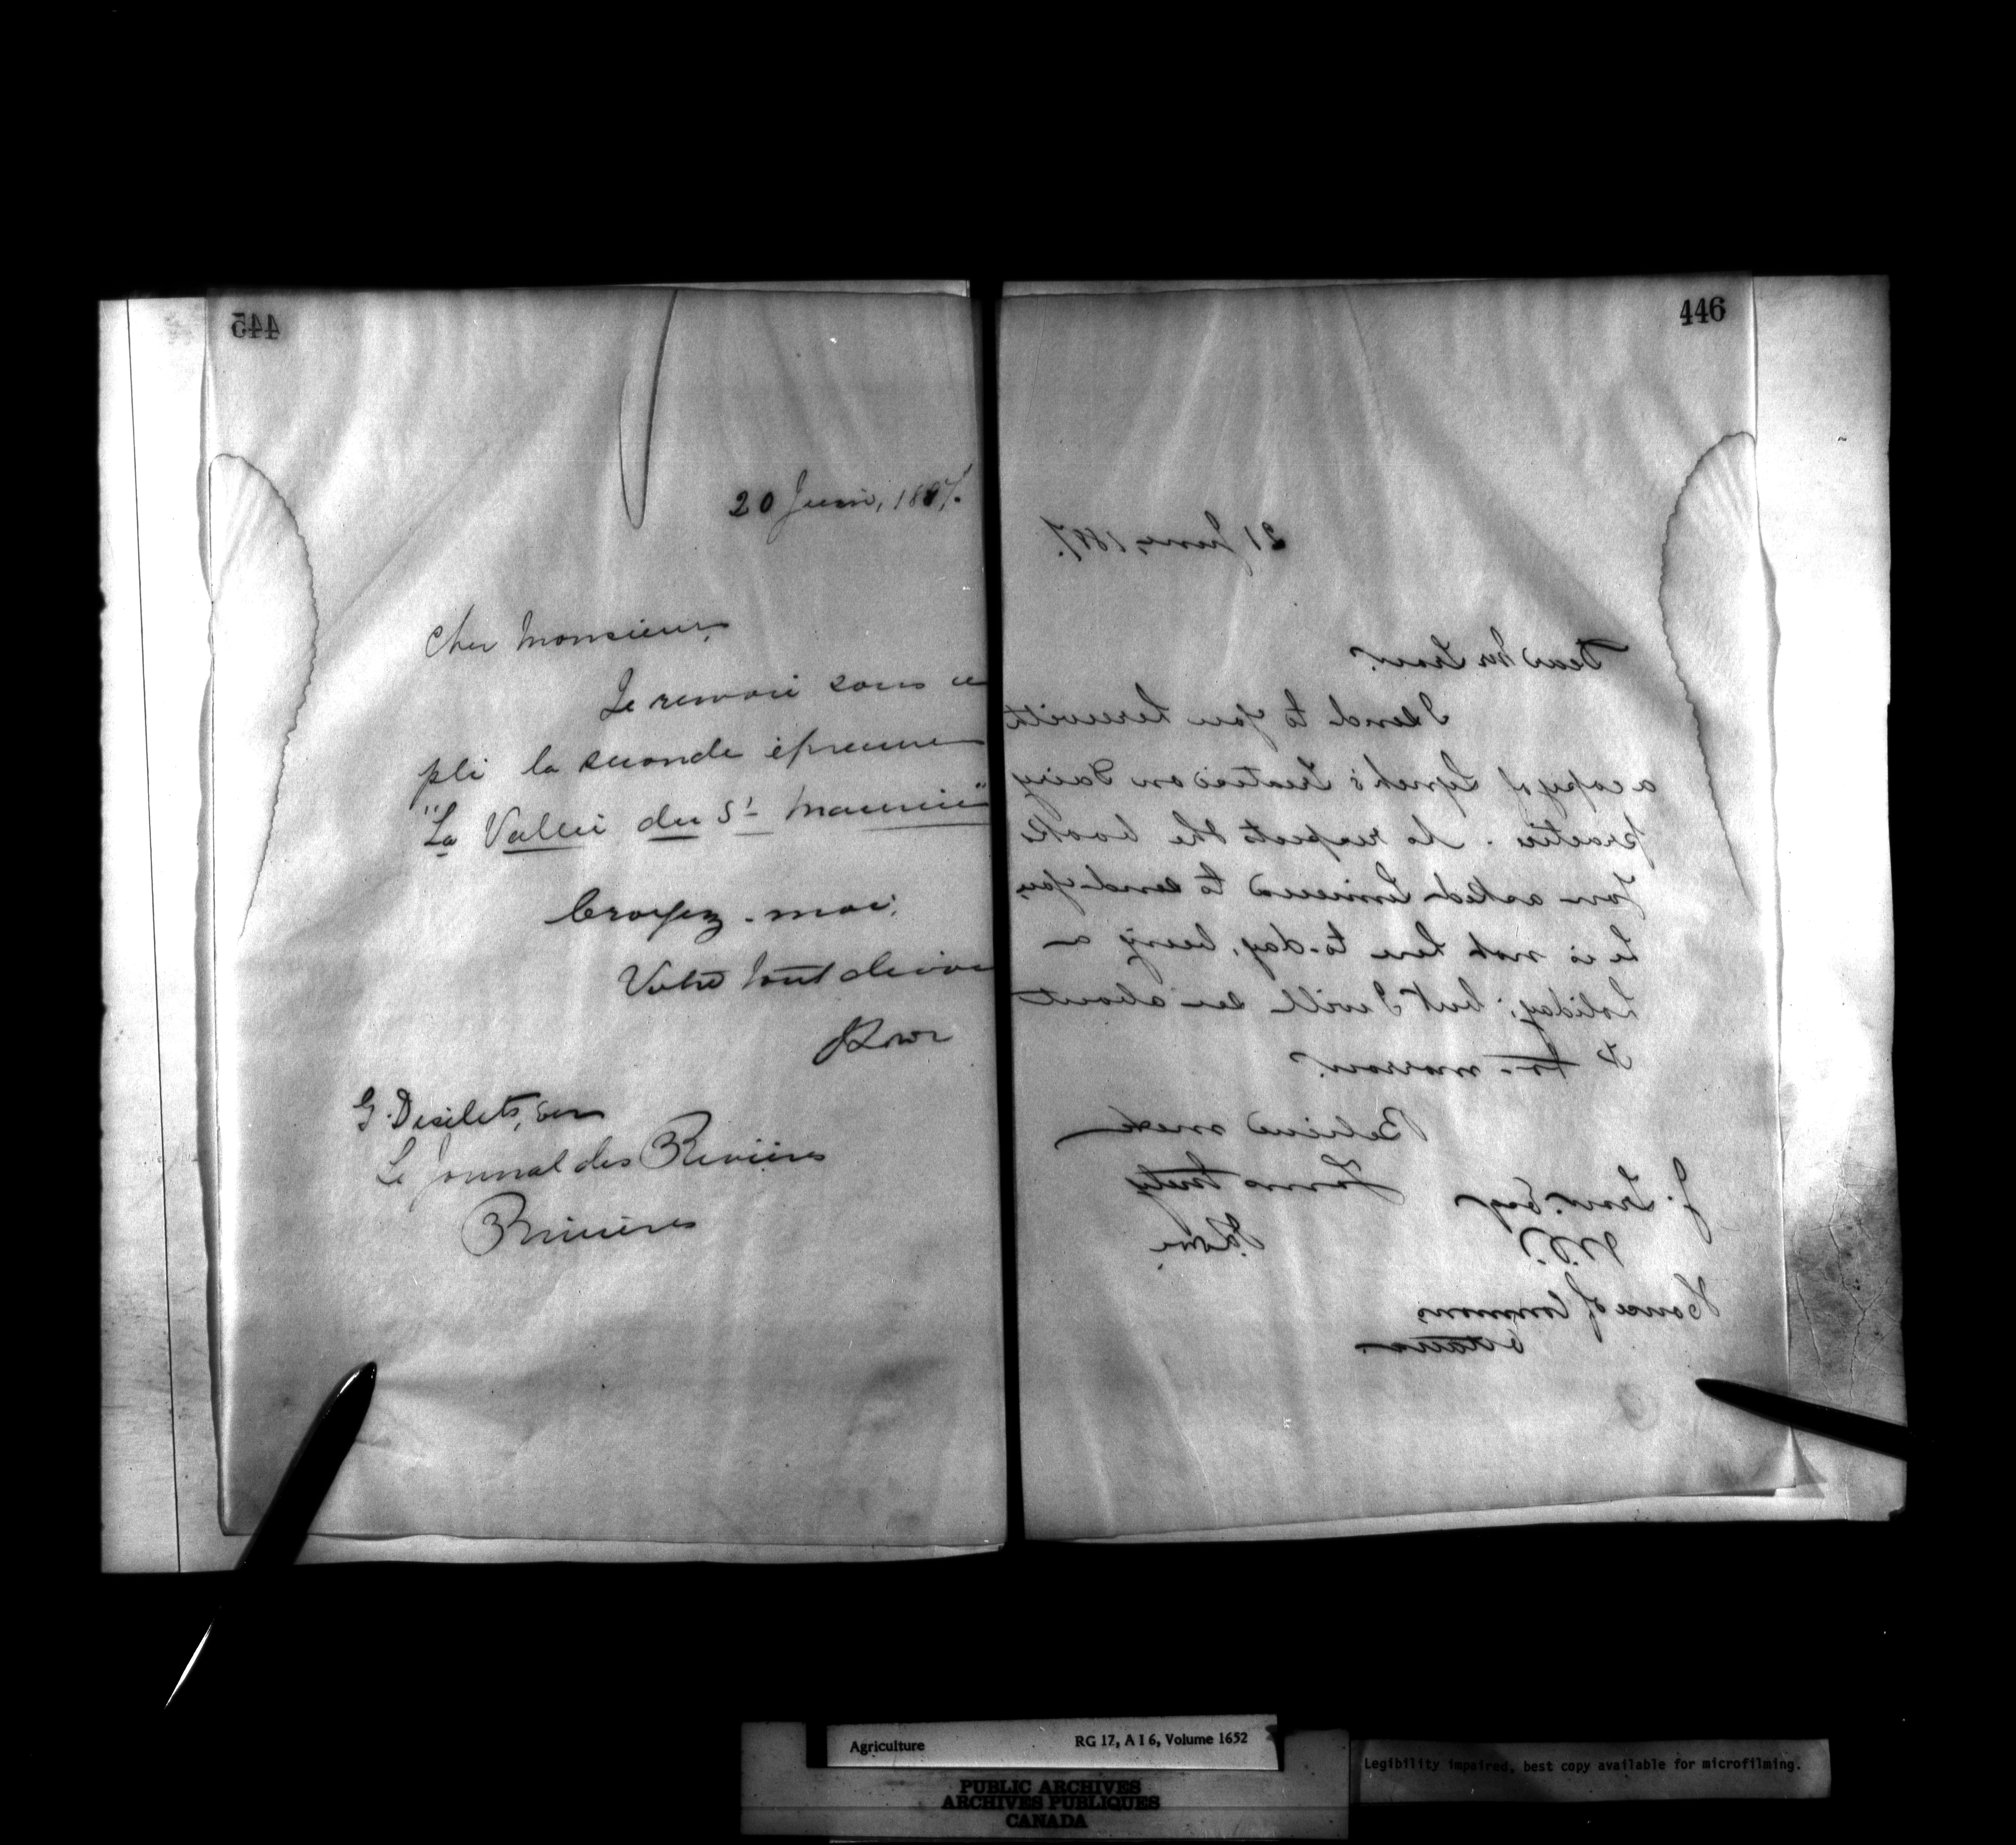 445
20 Juin, 1887.
Cher Monsieur,
Je renvoie sous ce
pli la seconde épreuve
"La Vallée du St Maurice"
Croyez-moi,
Votre tout dévoué
G. Desilets, Ecr
Le Journal des 3 Rivières
3 Rivières
446
21 June, 1887.
Dear Mr Trow.
I send to you herewith
a copy of Lynch's Treatise on Dairy
practice. As respects the book
You asked to send you,
he is not here to-day, being a
holiday; but I will see about
it to-morrow.
Believe me
Yours truly
J. Trow. Esq
M.P.
House of Commons
Ottawa
Agriculture RG 17, A I 6, Volume 1652
Legibility impaired, best copy available for microfilming.
PUBLIC ARCHIVES
ARCHIVES PUBLIQUES
CANADA